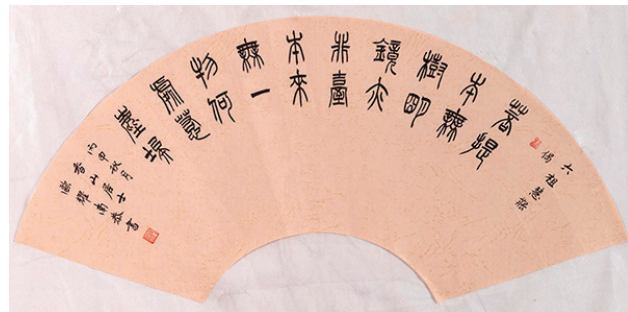 六祖慧能
偈
菩提
本無
樹明
鏡亦
非臺
本來
無一
物何
處惹
塵埃
丙申秋月
香山居士
耀南恭書